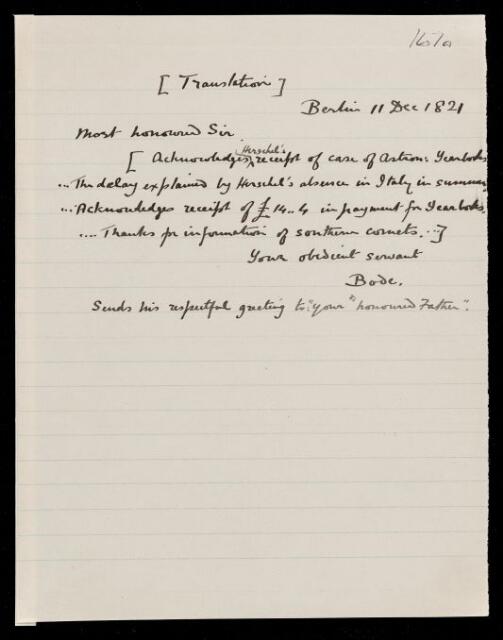 16?/a
[ Translation ]
Berlin 11 Dec 1821
Most honoured Sir
Herschel's
[ Acknowledges receipt of case of Astron: Yearbooks
... The delay explained by Herschel's absence in Italy in summer
... Acknowledges receipt of £14..4 in payment for Yearbooks,
.... Thanks for information of southern comets. ...]
Your obedient servant
Bode.
Sends his respectful greeting to "your" honoured Father".